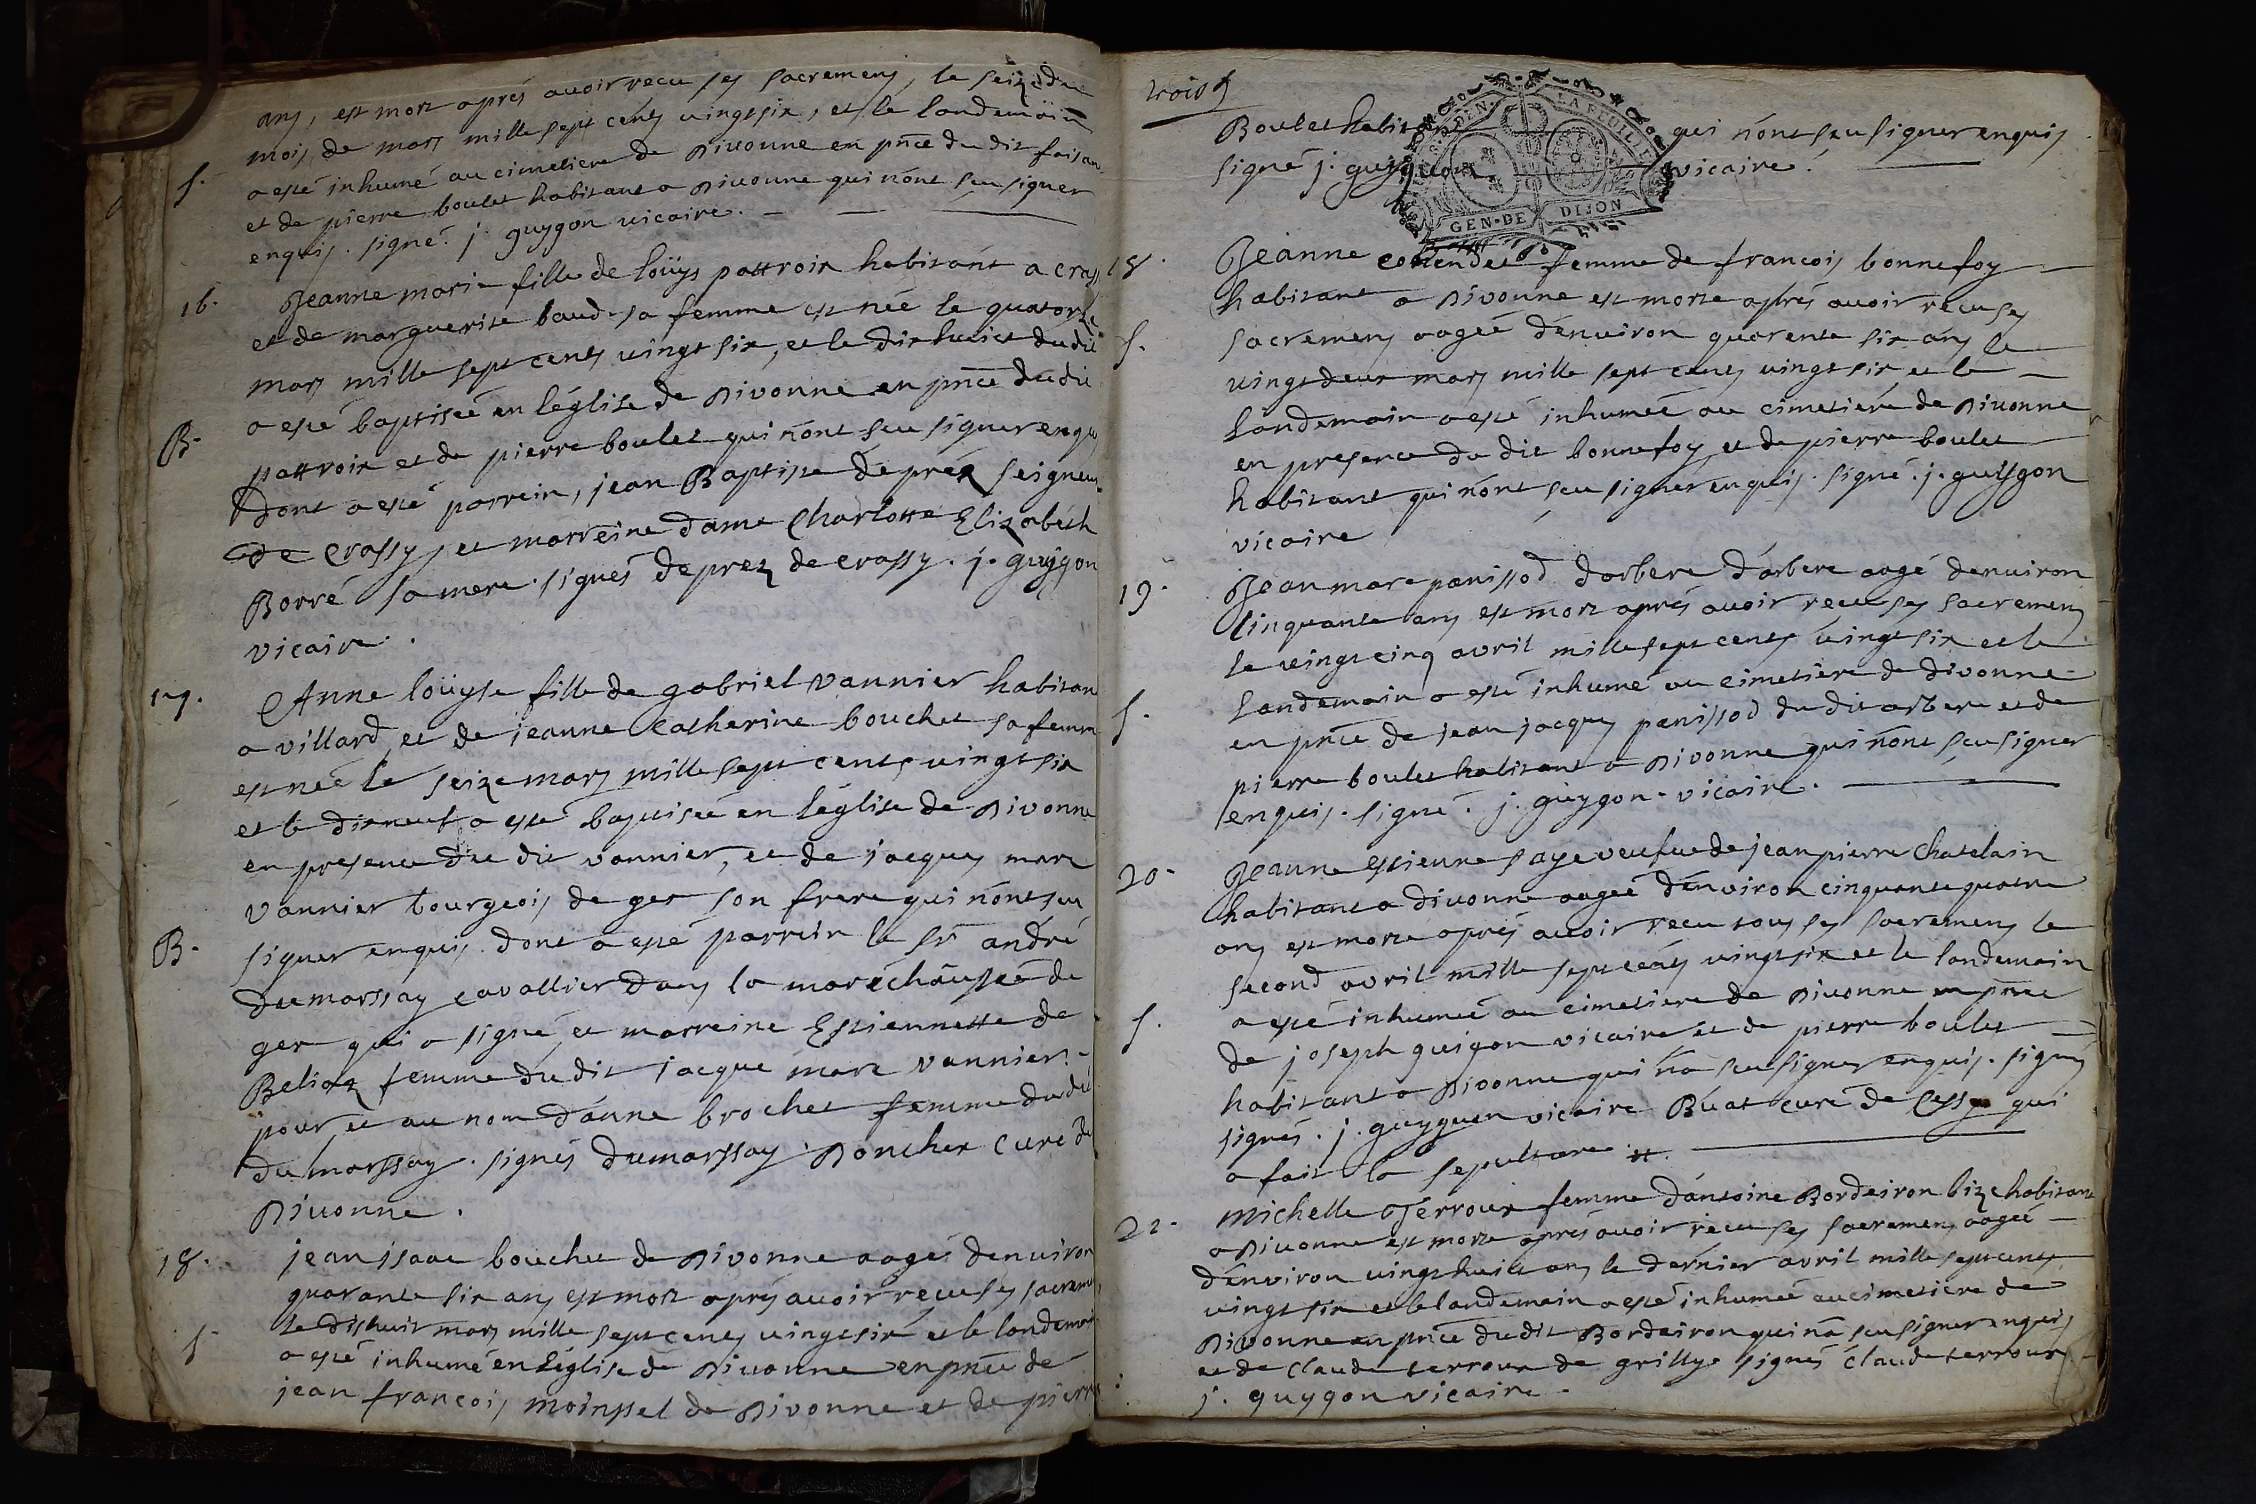 ans, est mort aprés avoir recu ses sacremens, le seize du
mois de mars mille sept cents vingt six, et le landemain
S.
a esté inhumé au cimetiere de Divonne en pnce du dit faisan
et de pierre boulet habitant a Divonne qui n'ont sceu signer
enquis. signé. j. guygon vicaire.
16.
Jeanne marie fille de loüys pattroix habitant a crassy
et de marguerite baud sa femme est née le quatorze
mars mille sept cents vingt six, et le dix huict du dit
a esté baptisée en léglise de Divonne en pnce du dit
B.
pattroix et de pierre boulet qui n'ont sceu signer enquis
dont a esté parrein, jean Baptiste dépréz seigneur
de Crassy, et marreine dame Charlotte Elizabeth
Borré sa mere. signés déprez de crassy. j. guygon
vicaire.
17.
Anne loüyse fille de gabriel vannier habitan
a villard et de jeanne Catherine bouchet sa femm
est née le seize mars mille sept cents vingt six
et le dixneuf a esté baptisée en léglise de Divonne
en presence du dit vannier, et de jacques marc
vannier bourgeois de gex son frere qui n'ont sceu
B.
signer enquis. dont a esté parrein le sr andré
dumarssay cavallier dans la maréchaussée de
gex qui a signé, et marreine Estiennette de
Beliaz femme du dit jacque marc vannier.
pour et au nom d'anne brochet femme du dit
du marssay. signés dumarssay Donchex curé de
Divonne.
18.
jean jsaac bouchet de Divonne aagés denviron
quarante six ans est mort aprés avoir recu ses sacremens
le dishuit mars mille sept cents vingt six et le landemain
S
a esté inhumé en léglise de Divonne en pnce de
jean francois moinssel de Divonne et de pierre
trois
Boulet habitans qui n'ont sceu signer enquis
signé j. guygon vicaire.
18.
Jeanne femme de francois bonnefoy
habitant a Divonne est morte aprés avoir recu ses
S.
sacremens aagée d'environ quarente six ans le
vingt deux mars mille sept cents vingt six et le
landemain a esté inhumée au cimetiére de Divonne
en presence du dit bonnefoy et de pierre boulet
habitant qui n'ont sceu signer enquis. signé. j. guygon
vicaire
19.
Jean marc panissod d'arbere d'arbere aagé denviron
cinquante ans est mort aprés avoir recu ses sacremens
le vingt cinq avril mille sept cents vingt six et le
S.
landemain a esté inhumé au cimetiere de divonne
en pnce de jean jacques panissod du dit arbere et de
pierre boulet habitant a Divonne qui n'ont sceu signer
enquis. signé. j. guygon. vicaire.
20.
Jeanne estienne saye veufue de jean pierre Chatelain
habitant a divonne aagée d'environ cinquante quatre
ans est morte aprés avoir recu tous ses sacremens le
second avril mille sept cents vingt six et le landemain
S.
a esté inhumée au cimetiere de Divonne en pnce
de joseph guigon vicaire et de pierre boulet
habitant a Divonne qui n'a sceu signer enquis. signés
signés. j. guyguon vicaire Buat curé de Cessy qui
a fait la sepulture.
22.
michelle terroux femme d'antoine Bordeiron bize habitant
a Divonne est morte aprés avoir recu ses sacremens aagée
d'environ vingt huict ans le dérnier avril mille sept cents
vingt six et le landemain a esté inhumée au cimetiere de
Divonne en pnce du dit Bordeiron qui n'a sceu signer enquis
et de claude terroux de grilly. signés claude terroux
j. guygon vicaire.
GEN·DE DIJON